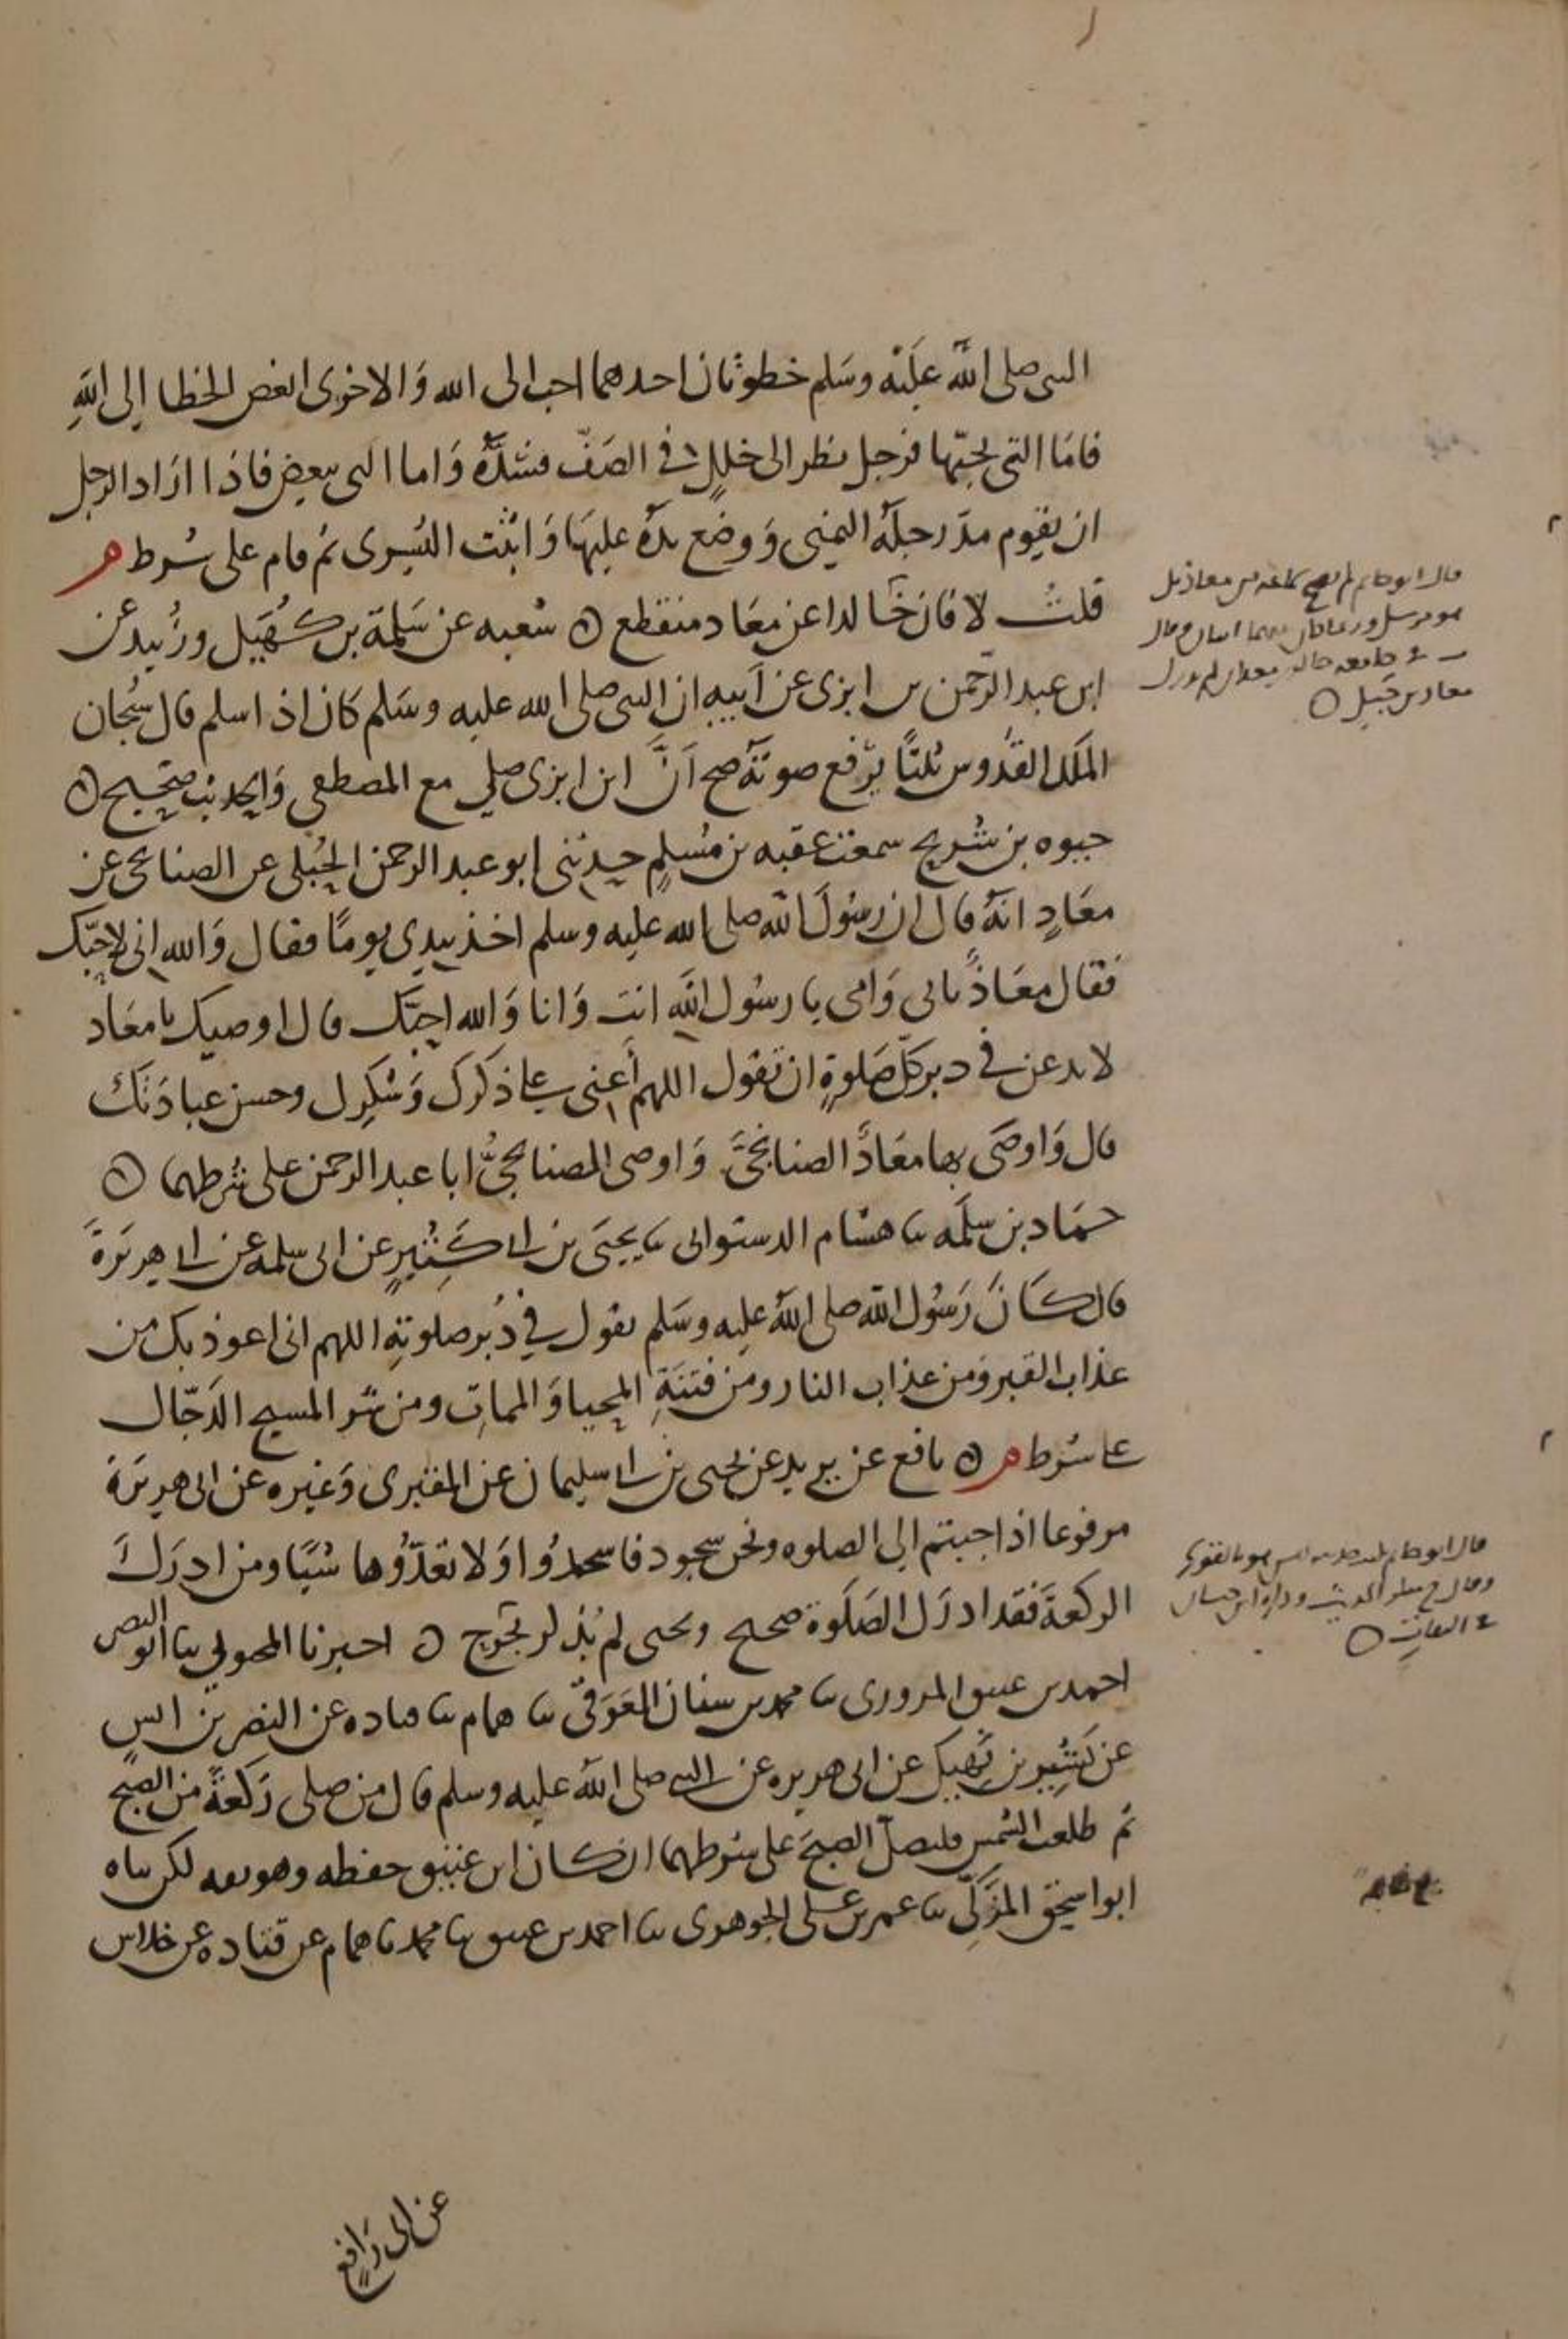 النبي صلى الله عليه وسلم خطوتان احدهما احب الى الله والاخرى ابغض الخطا الى الله
فاما التي يحبها فرجل نظر الى خلل في الصف فسده واما التي يبغض فاذا اراد الرجل
ان يقوم مد رجله اليمنى ووضع يده عليها واثبت اليسرى ثم قام على شرط م
قلت لا فان خالدا عن معاذ منقطع ه شعبه عن سلمة بن كهيل وزبيد عن
ابن عبد الرحمن بن ابزى عن ابيه ان النبي صلى الله عليه وسلم كان اذا سلم قال سبحان
الملك القدوس ثلثا يرفع صوته صح ان ابن ابزى صلى مع المصطفى والحديث صحيح ه
حيوه بن شريح سمعت عقبه بن مسلم حدثني ابو عبد الرحمن الحبلى عن الصنابحى عن
معاذ انه قال ان رسول الله صلى الله عليه وسلم اخذ بيدي يوما فقال والله اني لاحبك
فقال معاذ بابي وامي يا رسول الله انت وانا والله احبك قال اوصيك يا معاذ
لا تدعن في دبر كل صلوة ان تقول اللهم اعني على ذكرك وشكرك وحسن عبادتك
قال واوصى بها معاذ الصنابحي واوصى الصنابحي ابا عبد الرحمن على شرطهما ه
حماد بن سلمه ثنا هشام الدستوائي ثنا يحيى بن ابي كثير عن ابي سلمه عن ابي هريرة
قال كان رسول الله صلى الله عليه وسلم يقول في دبر صلوته اللهم اني اعوذ بك من
عذاب القبر ومن عذاب النار ومن فتنة المحيا والممات ومن شر المسيح الدجال
على شرط م ه نافع عن يزيد عن يحيى بن ابي سليمان عن المقبرى وغيره عن ابي هريرة
مرفوعا اذا جيتم الى الصلوه ونحن سجود فاسجدوا ولا تعدوها شيا ومن ادرك
الركعة فقد ادرك الصلوة صحيح ويحيى لم يذكر بجرح ه اخبرنا المحبوبي ثنا ابو النصر
احمد بن عتيق المروزي ثنا محمد بن سنان العوقي ثنا همام ثنا قتاده عن النضر بن انس
عن بشير بن نهيك عن ابي هريره عن النبي صلى الله عليه وسلم قال من صلى ركعة من الصبح
ثم طلعت الشمس فليصل الصبح على شرطهما ان كان ابن عتيق حفظه وهو ثقه لكن ثناه
ابو اسحق المزكى ثنا عمر بن على الجوهرى ثنا احمد بن عتيق ثنا محمد ثنا همام عن قتاده عن خلاس
قال ابو حاتم لم يصح سماعه من معاذ بل
هو مرسل وربما كان بينهما اثنان وقال
في جامعه خالد بن معدان لم يدرك
معاذ بن جبل ه
قال ابو حاتم يكتب حديثه ليس هو بالقوي
وقال خ منكر الحديث وذكره ابن حبان
في الثقات ه
عن ابي رافع